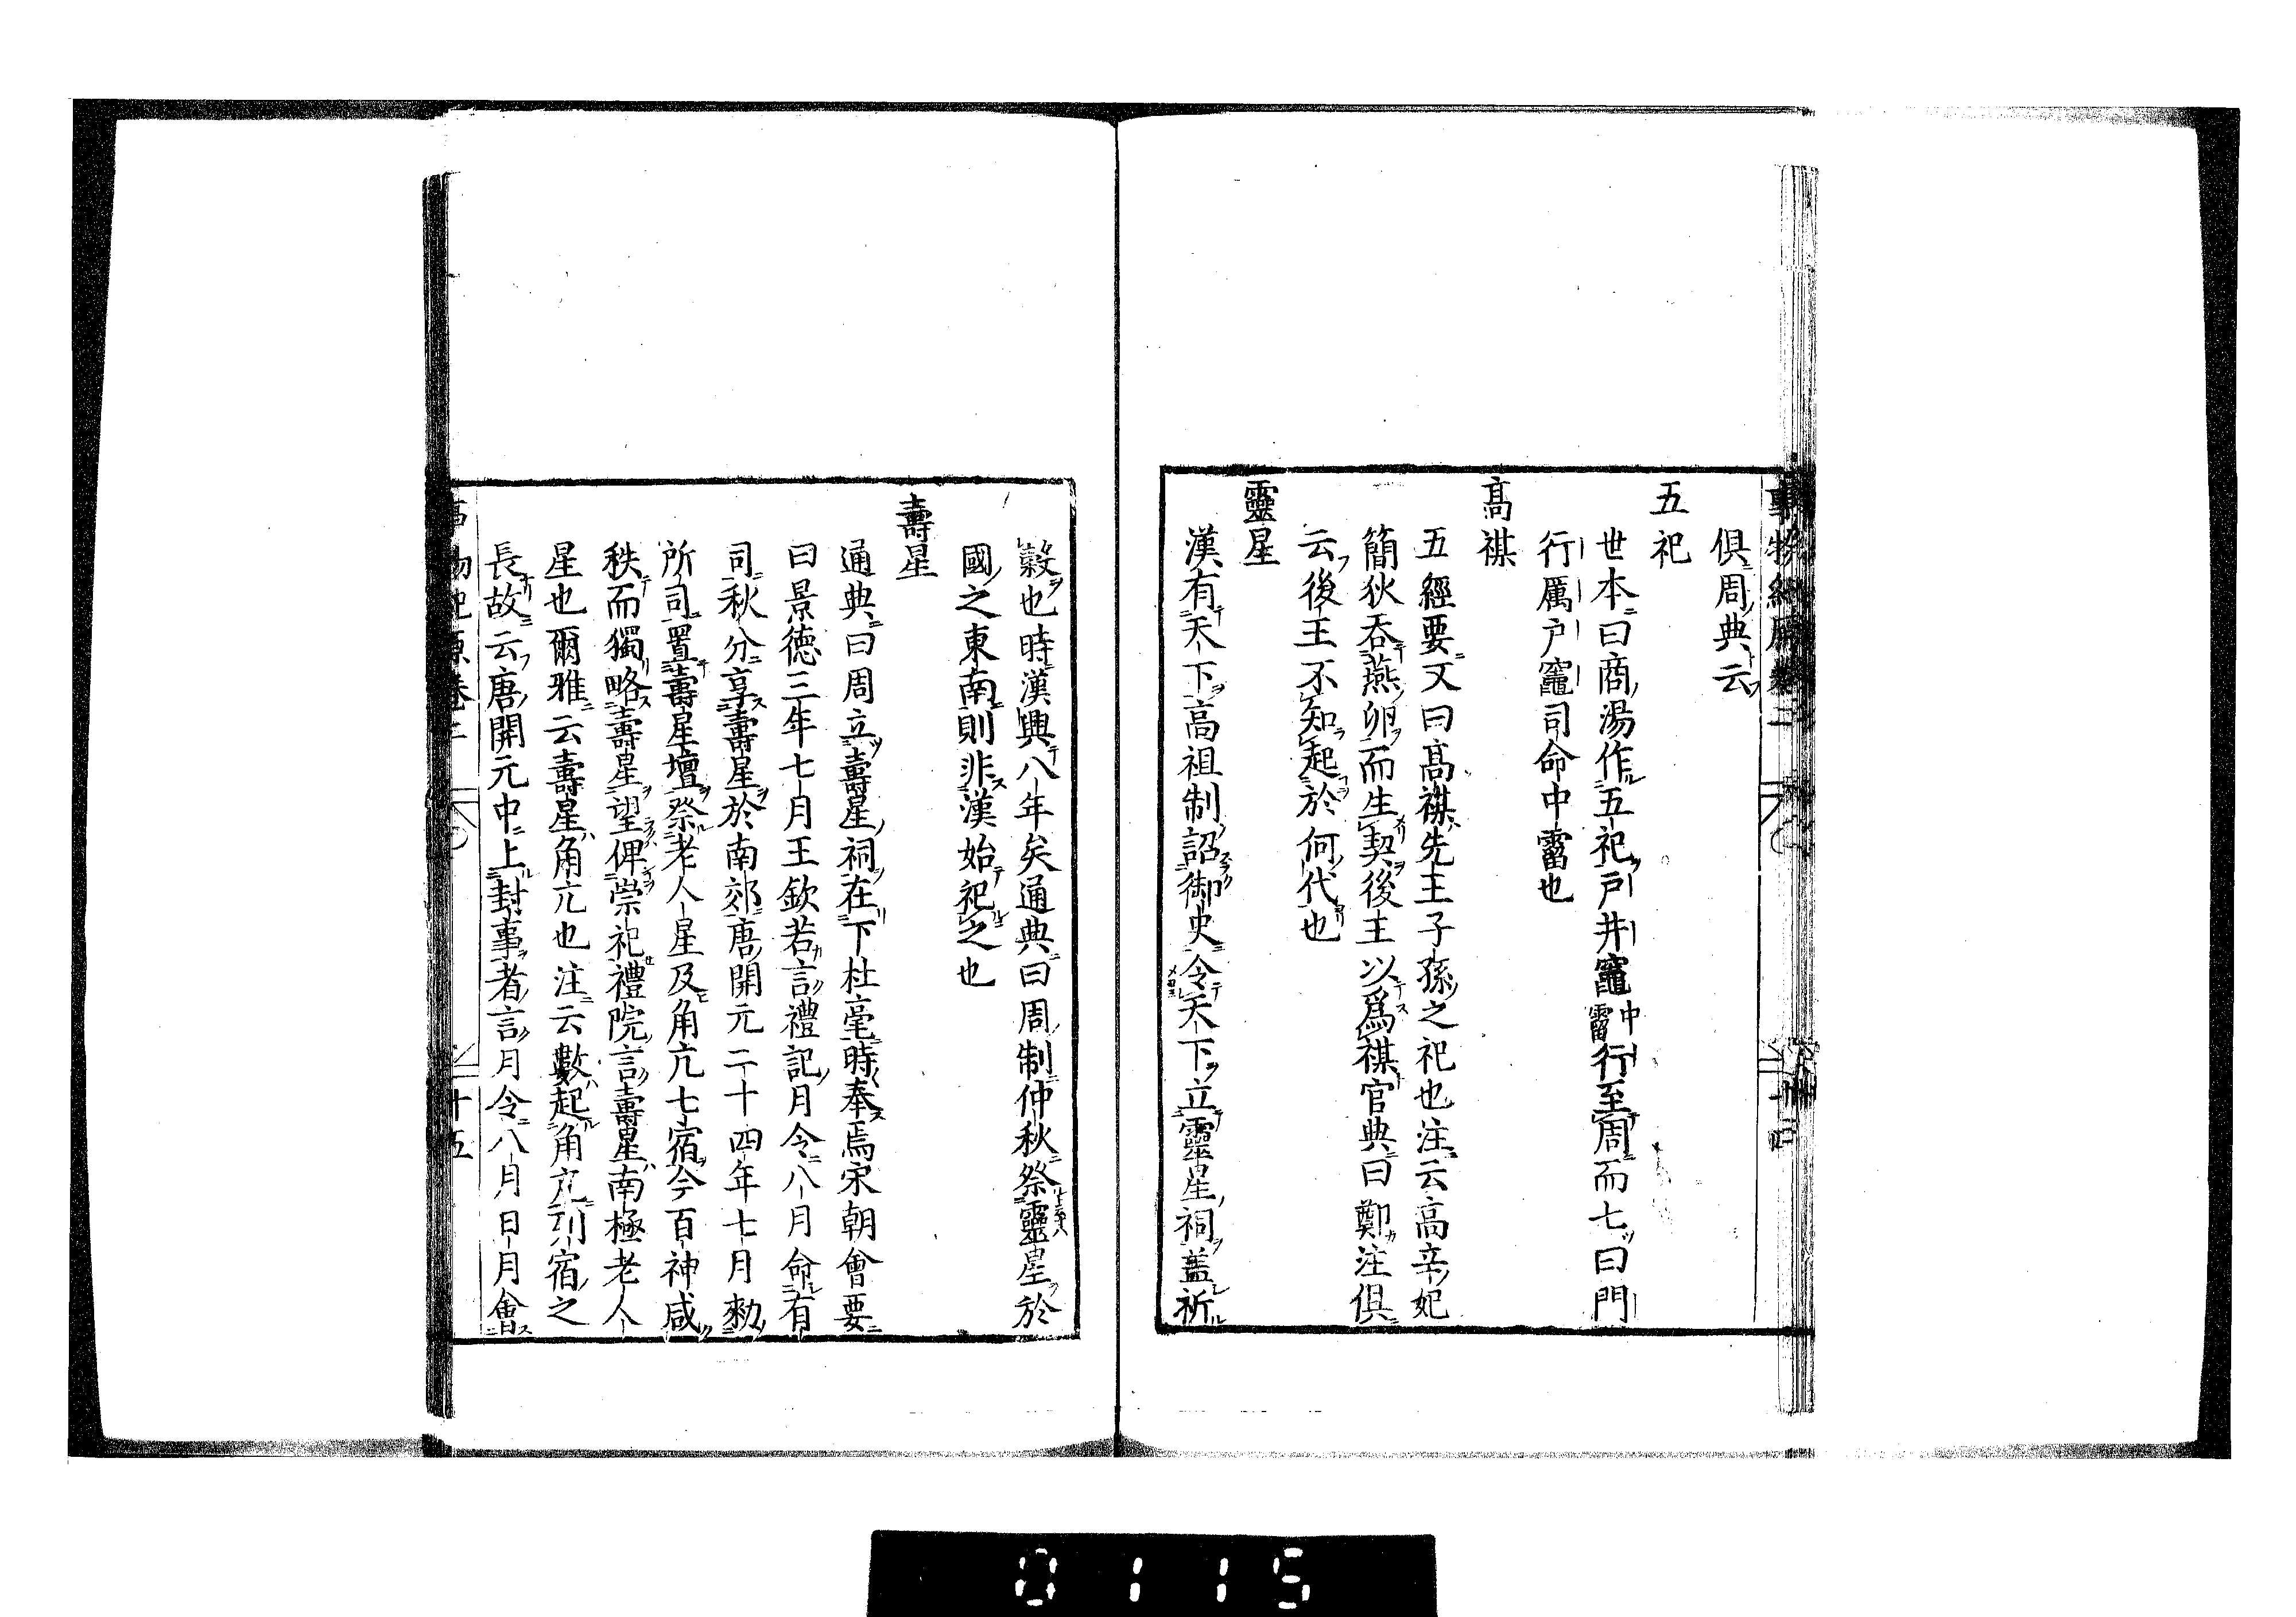 俱周典云
五祀
世本曰商湯作五祀戸井竈中霤行至周而七曰門
行厲户竈司命中霤也
高禖
五經要義曰高禖先王子孫之祀也注云高辛妃
簡狄吞燕卵而生契後王以爲禖官典曰鄭注俱
云後王不知起於何代也
靈星
漢有天下高祖制詔御史令天下立靈星祠蓋祈
穀也時漢興八年矣通典曰周制仲秋祭靈星於
國之東南則非漢始祀之也
壽星
通典曰周立壽星祠在下杜亳時奉焉宋朝會要
曰景德三年七月王欽若言禮記月令八月命有
司秋分享壽星於南郊唐開元二十四年七月勑
所司置壽星壇祭老人星及角亢七宿今百神咸
秩而獨略壽星望俾崇祀禮院言壽星南極老人
星也爾雅云壽星角亢也注云數起角亢列宿之
長故云唐開元中上封事者言月令八月日月會
事物紀原卷二 十五
0115